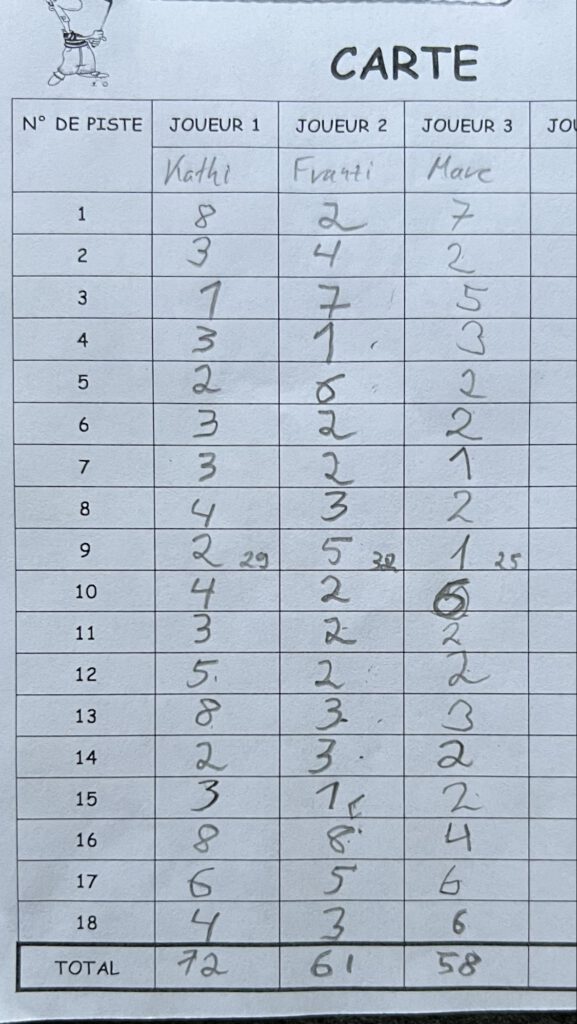 CARTE
N° DE PISTE JOUEUR 1 JOUEUR 2 JOUEUR 3 JOU
Kathi Franzi Marc
1 8 2 7
2 3 4 2
3 1 7 5
4 3 1 3
5 2 6 2
6 3 2 2
7 3 2 1
8 4 3 2
9 2 29 5 32 1 25
10 4 2 6
11 3 2 2
12 5 2 2
13 8 3 3
14 2 3 2
15 3 1 2
16 8 8 4
17 6 5 6
18 4 3 6
TOTAL 72 61 58